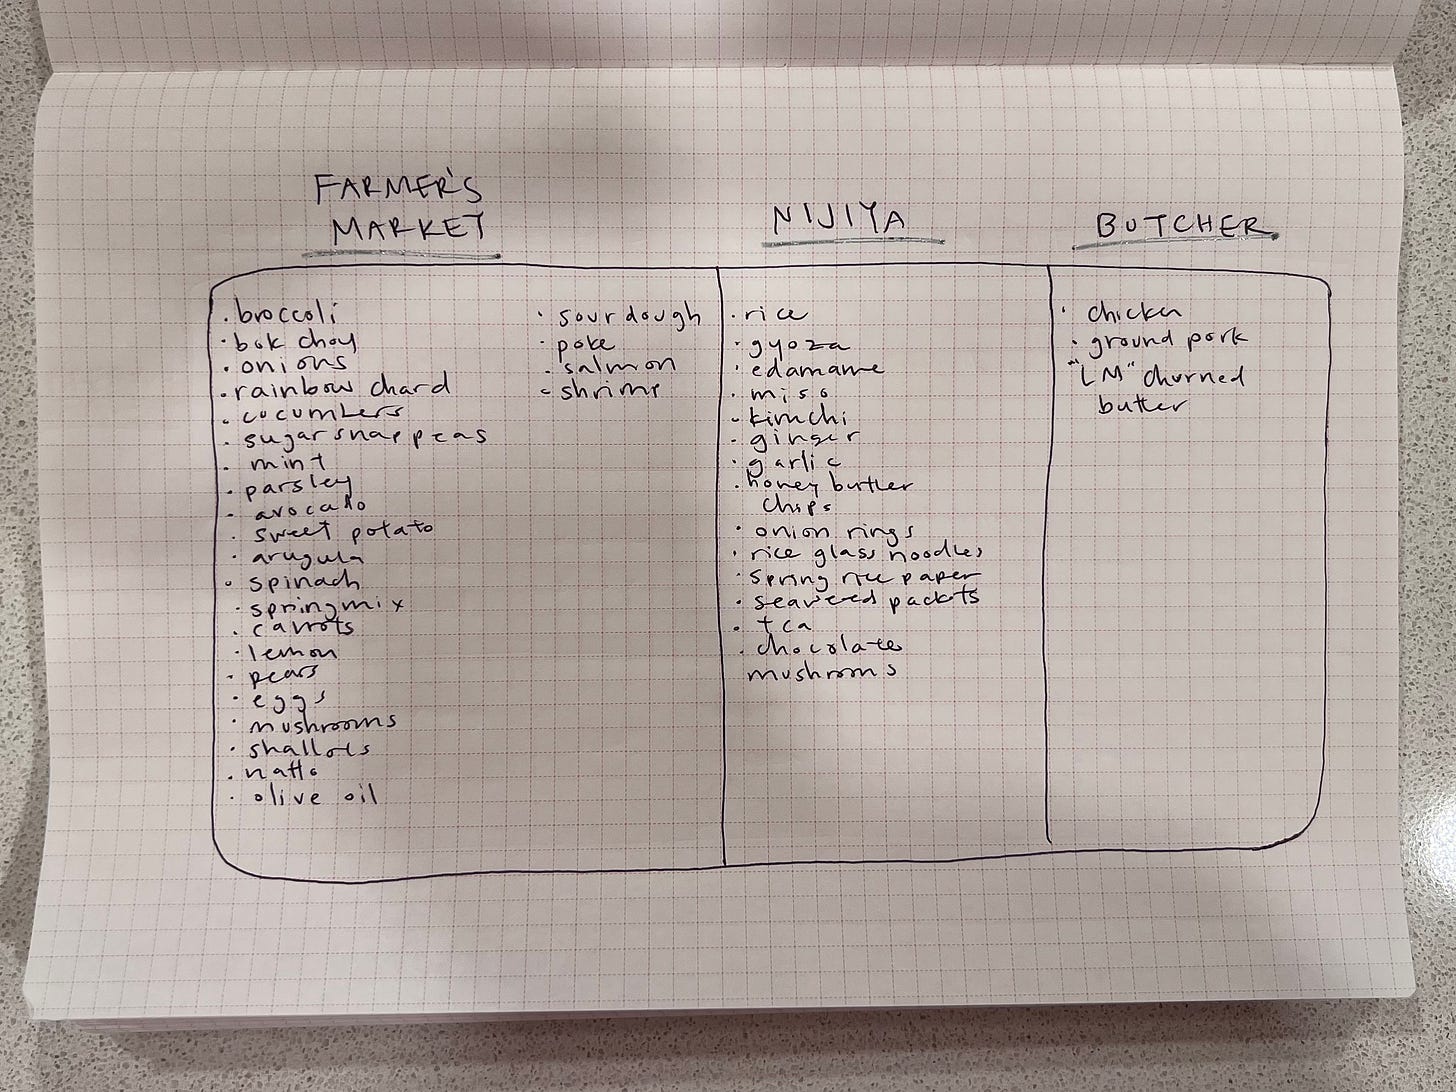 FARMER'S
MARKET
· broccoli
· bok choy
· onions
· rainbow chard
· cucumbers
· sugar snap peas
· mint
· parsley
· avocado
· sweet potato
· arugula
· spinach
· spring mix
· carrots
· lemon
· pears
· eggs
· mushrooms
· shallots
· natto
· olive oil
· sourdough
· poke
· salmon
- shrimp
NIJIYA
· rice
· gyoza
· edamame
· miso
· kimchi
· ginger
· garlic
· honey butter
chips
· onion rings
· rice glass noodles
· spring rice paper
· seaweed packets
· tea
· chocolates
mushrooms
BUTCHER
· chicken
· ground pork
"LM" churned
butter